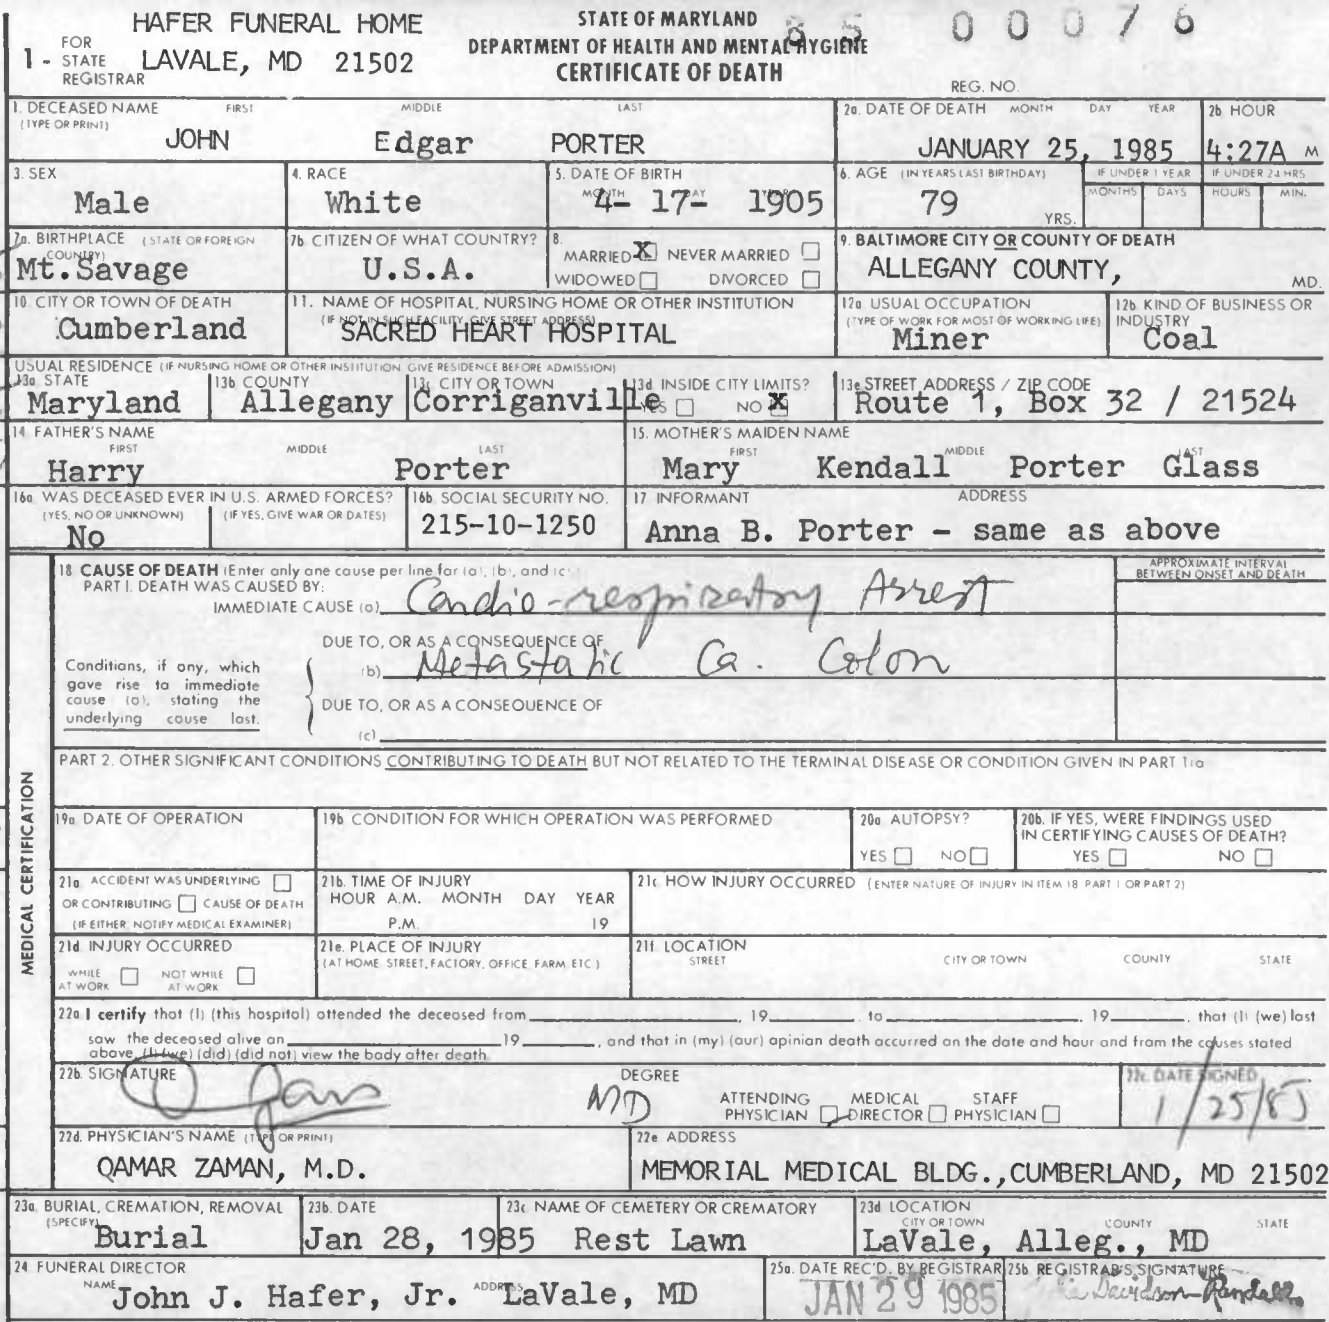 HAFER FUNERAL HOME
STATE OF MARYLAND
85 00076
FOR
1 - STATE
REGISTRAR
LAVALE, MD 21502
DEPARTMENT OF HEALTH AND MENTAL HYGIENE
CERTIFICATE OF DEATH
REG. NO.
1. DECEASED NAME FIRST MIDDLE LAST
(TYPE OR PRINT)
JOHN Edgar PORTER
2a. DATE OF DEATH MONTH DAY YEAR
JANUARY 25, 1985
2b HOUR
4:27A M
3. SEX
Male
4. RACE
White
5. DATE OF BIRTH
MONTH DAY YEAR
4- 17- 1905
6. AGE (IN YEARS LAST BIRTHDAY)
79 YRS.
IF UNDER 1 YEAR
MONTHS DAYS
IF UNDER 24 HRS
HOURS MIN.
7a. BIRTHPLACE (STATE OR FOREIGN
COUNTRY)
Mt.Savage
7b CITIZEN OF WHAT COUNTRY?
U.S.A.
8.
MARRIED X NEVER MARRIED
WIDOWED DIVORCED
9. BALTIMORE CITY OR COUNTY OF DEATH
ALLEGANY COUNTY, MD.
10 CITY OR TOWN OF DEATH
Cumberland
11. NAME OF HOSPITAL, NURSING HOME OR OTHER INSTITUTION
(IF NOT IN SUCH FACILITY, GIVE STREET ADDRESS)
SACRED HEART HOSPITAL
12a USUAL OCCUPATION
(TYPE OF WORK FOR MOST OF WORKING LIFE)
Miner
12b KIND OF BUSINESS OR
INDUSTRY
Coal
USUAL RESIDENCE (IF NURSING HOME OR OTHER INSTITUTION GIVE RESIDENCE BEFORE ADMISSION)
13a STATE
Maryland
13b COUNTY
Allegany
13c CITY OR TOWN
Corriganville
13d INSIDE CITY LIMITS?
YES NO X
13e STREET ADDRESS / ZIP CODE
Route 1, Box 32 / 21524
14 FATHER'S NAME
FIRST MIDDLE LAST
Harry Porter
15. MOTHER'S MAIDEN NAME
FIRST MIDDLE LAST
Mary Kendall Porter Glass
16a WAS DECEASED EVER IN U.S. ARMED FORCES?
(YES, NO OR UNKNOWN) (IF YES, GIVE WAR OR DATES)
No
16b SOCIAL SECURITY NO.
215-10-1250
17 INFORMANT ADDRESS
Anna B. Porter - same as above
MEDICAL CERTIFICATION
18 CAUSE OF DEATH (Enter only one cause per line for (a), (b), and (c)
PART I. DEATH WAS CAUSED BY:
IMMEDIATE CAUSE (a) Cardio-respiratory Arrest
APPROXIMATE INTERVAL
BETWEEN ONSET AND DEATH
DUE TO, OR AS A CONSEQUENCE OF
(b) Metastatic Ca. Colon
Conditions, if any, which
gave rise to immediate
cause (a), stating the
underlying cause last.
DUE TO, OR AS A CONSEQUENCE OF
(c)
PART 2. OTHER SIGNIFICANT CONDITIONS CONTRIBUTING TO DEATH BUT NOT RELATED TO THE TERMINAL DISEASE OR CONDITION GIVEN IN PART 1(a
19a DATE OF OPERATION
19b CONDITION FOR WHICH OPERATION WAS PERFORMED
20a AUTOPSY?
YES NO
20b. IF YES, WERE FINDINGS USED
IN CERTIFYING CAUSES OF DEATH?
YES NO
21a ACCIDENT WAS UNDERLYING
OR CONTRIBUTING CAUSE OF DEATH
(IF EITHER, NOTIFY MEDICAL EXAMINER)
21b. TIME OF INJURY
HOUR A.M. MONTH DAY YEAR
P.M. 19
21c HOW INJURY OCCURRED (ENTER NATURE OF INJURY IN ITEM 18 PART 1 OR PART 2)
21d INJURY OCCURRED
WHILE AT WORK NOT WHILE AT WORK
21e. PLACE OF INJURY
(AT HOME STREET, FACTORY, OFFICE FARM ETC)
21f LOCATION
STREET CITY OR TOWN COUNTY STATE
22a I certify that (I) (this hospital) attended the deceased from 19 , to 19 , that (I) (we) last
saw the deceased alive on 19 , and that in (my) (our) opinion death occurred on the date and hour and from the causes stated
above, (I) (we) (did) (did not) view the body after death
22b. SIGNATURE
DEGREE
MD
ATTENDING PHYSICIAN MEDICAL DIRECTOR STAFF PHYSICIAN
22c. DATE SIGNED
1/25/85
22d. PHYSICIAN'S NAME (TYPE OR PRINT)
QAMAR ZAMAN, M.D.
22e ADDRESS
MEMORIAL MEDICAL BLDG.,CUMBERLAND, MD 21502
23a. BURIAL, CREMATION, REMOVAL
(SPECIFY)
Burial
23b. DATE
Jan 28, 1985
23c NAME OF CEMETERY OR CREMATORY
Rest Lawn
23d LOCATION
CITY OR TOWN COUNTY STATE
LaVale, Alleg., MD
24 FUNERAL DIRECTOR
NAME John J. Hafer, Jr. ADDRESS LaVale, MD
25a. DATE REC'D. BY REGISTRAR
JAN 29 1985
25b. REGISTRAR'S SIGNATURE
Davidson-Randall